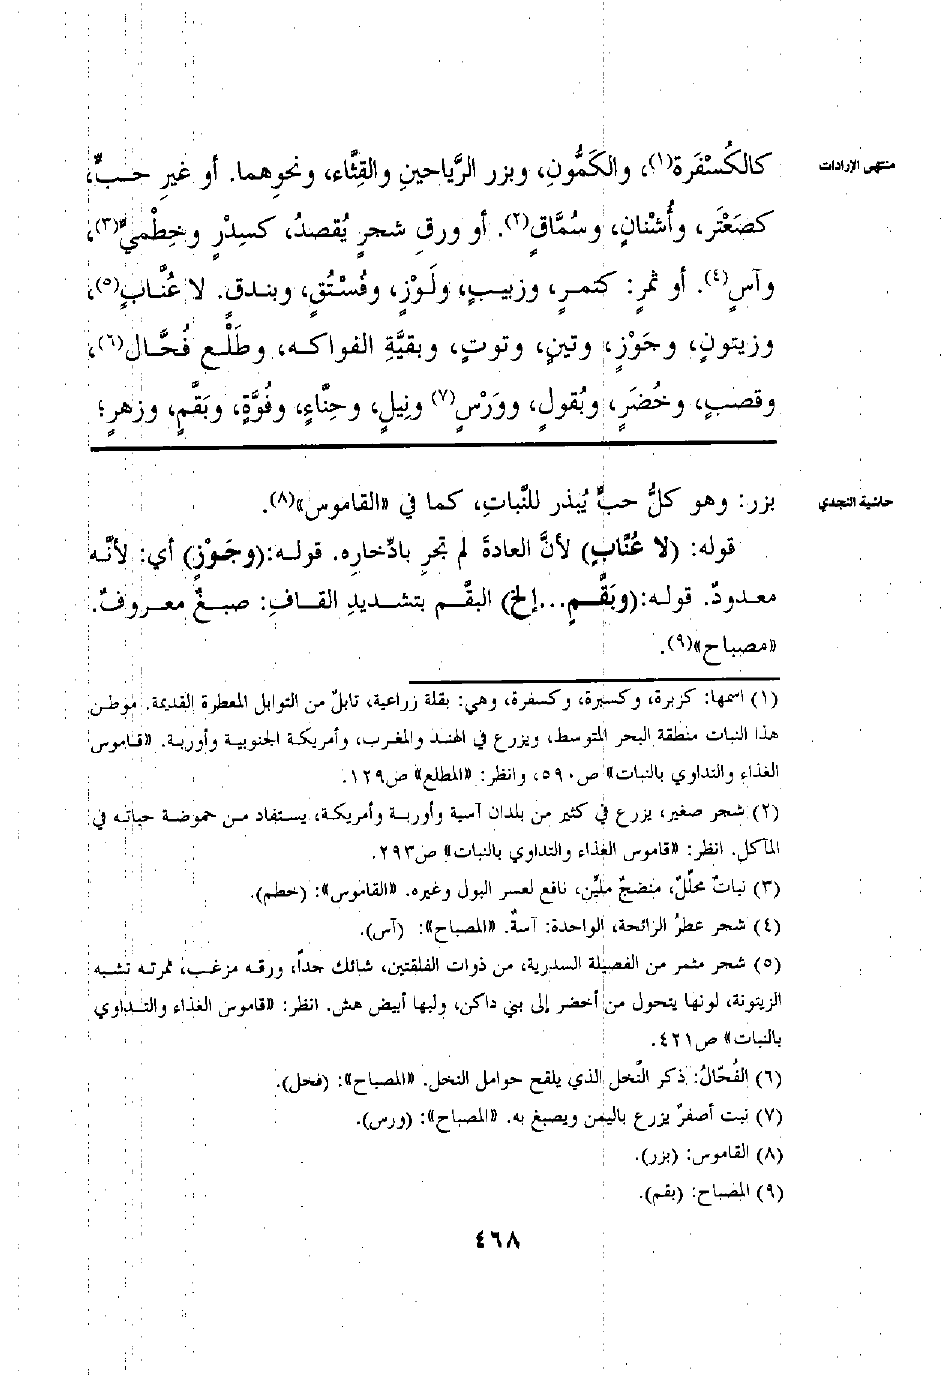 منتهى الإرادات
كالكُسْفَرة(١)، والكَمُّونِ، وبزر الرَّياحينِ والقِثَّاء، ونحوِهما. أو غيرِ حــبٍّ؛
كصَعْتَرٍ، وأُشْنانٍ، وسُمَّاقٍ(٢). أو ورقِ شجرٍ يُقصدُ، كسِدْرٍ وخِطْميٍّ(٣)،
وآسٍ(٤). أو ثمرٍ: كتمرٍ، وزبيبٍ، ولَوْزٍ، وفُسْتُقٍ، وبندق. لا عُنَّابٍ(٥)،
وزيتونٍ، وجَوْزٍ، وتينٍ، وتوتٍ، وبقيَّةِ الفواكــه، وطَلْـعِ فُحَّـال(٦)،
وقصبٍ، وخُضَرٍ، وبُقولٍ، ووَرْسٍ(٧) ونِيلٍ، وحِنَّاءٍ، وفُوَّةٍ، وبَقَّمٍ، وزهرٍ؛
حاشية النجدي
بزر: وهو كلُّ حبٍّ يُبذر للنَّباتِ، كما في «القاموس»(٨).
قوله: (لا عُنَّابٍ) لأنَّ العادةَ لم تجرِ بادِّخاره. قولـه:(وجَوْزٍ) أي: لأنَّـه
معـدودٌ. قولـه:(وبَقَّـمٍ...إلخ) البقَّـم بتشديدِ القـافِ: صبـغٌ معـروفٌ.
«مصباح»(٩).
(١) اسمها: كزبرة، وكسبرة، وكسفرة، وهي: بقلة زراعية، تابلٌ من التوابل المعطرة القديمة. موطـن
هذا النبات منطقة البحر المتوسط، ويزرع في الهند والمغرب، وأمريكـة الجنوبيـة وأوربـة. «قـاموس
الغذاء والتداوي بالنبات» ص٥٩٠، وانظر: «المطلع» ص١٢٩.
(٢) شجر صغير، يزرع في كثير من بلدان آسية وأوربـة وأمريكـة، يستفاد مـن حموضـة حباتـه في
المآكل. انظر: «قاموس الغذاء والتداوي بالنبات» ص٢٩٣.
(٣) نباتٌ محلِّلٌ، منضجٌ مليِّن، نافع لعسر البول وغيره. «القاموس»: (خطم).
(٤) شجر عطرُ الرائحة، الواحدة: آسةٌ. «المصباح»: (آس).
(٥) شجر مثمر من الفصيلة السدرية، من ذوات الفلقتين، شائك جداً، ورقه مزغب، ثمرته تشبه
الزيتونة، لونها يتحول من أخضر إلى بني داكن، ولبها أبيض هش. انظر: «قاموس الغذاء والتـداوي
بالنبات» ص٤٢١.
(٦) الفُحّالُ: ذكر النّخل الذي يلقح حوامل النخل. «المصباح»: (فحل).
(٧) نبت أصفرٌ يزرع باليمن ويصبغ به. «المصباح»: (ورس).
(٨) القاموس: (بزر).
(٩) المصباح: (بقم).
٤٦٨